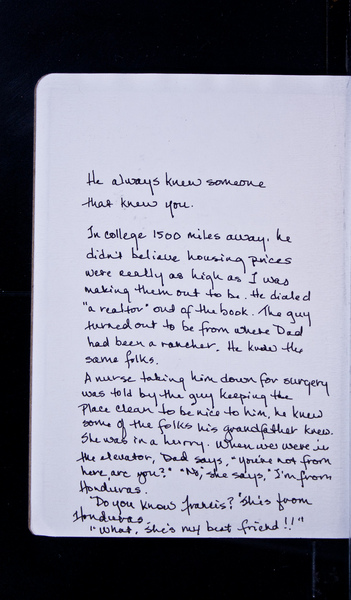 He always knew someone
that knew you.
In college 1500 miles away, he
didn't believe housing prices
were really as high as I was
making them out to be. He dialed
"a realtor" out of the book. The guy
turned out to be from where Dad
had been a rancher. He knew the
same folks.
A nurse taking him down for surgery
was told by the guy keeping the
place clean to be nice to him, he knew
some of the folks his grandfather knew.
She was in a hurry. When we were in
the elevator, Dad says, "You're not from
here are you?" "No," she says, "I'm from
Honduras.
"Do you know Francis? She's from
Honduras.
"What, she's my best friend!!"